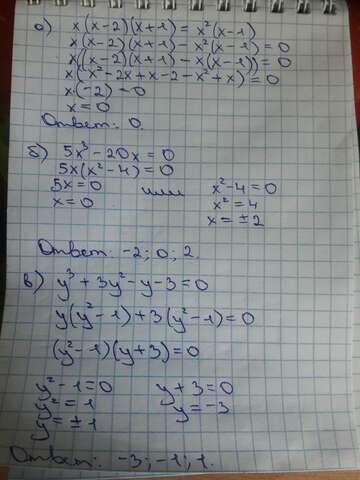 а) x(x-2)(x+1) = x²(x-1)
x(x-2)(x+1) - x²(x-1) = 0
x((x-2)(x+1) - x(x-1)) = 0
x(x²-2x+x-2-x²+x) = 0
x·(-2) = 0
x = 0
Ответ: 0.
б) 5x³ - 20x = 0
5x(x²-4) = 0
5x = 0 или x²-4 = 0
x = 0 x² = 4
x = ±2
Ответ: -2; 0; 2.
в) y³ + 3y² - y - 3 = 0
y(y²-1) + 3(y²-1) = 0
(y²-1)(y+3) = 0
y²-1 = 0 y+3 = 0
y² = 1 y = -3
y = ±1
Ответ: -3; -1; 1.